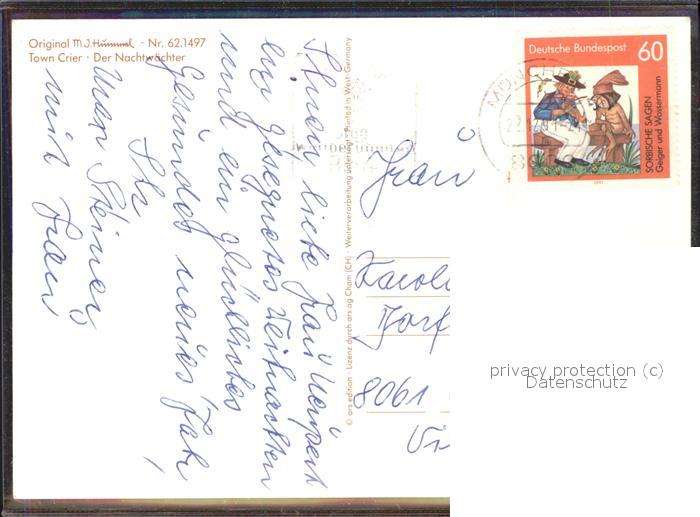 Original M.J. Hummel - Nr. 62.1497
Town Crier · Der Nachtwächter
Ihnen liebe Frau
ein gesegnetes Weihnachten
und ein glückliches
gesundes neues Jahr
Ihr
Max Steiner
mit Frau
© ars edition · Lizenz durch ars ag Cham (CH) · Weiterverarbeitung untersagt · Printed in West Germany
Deutsche Bundespost 60
SORBISCHE SAGEN
Geiger und Wassermann
Frau
Karol
Dorf
8061
privacy protection (c)
Datenschutz